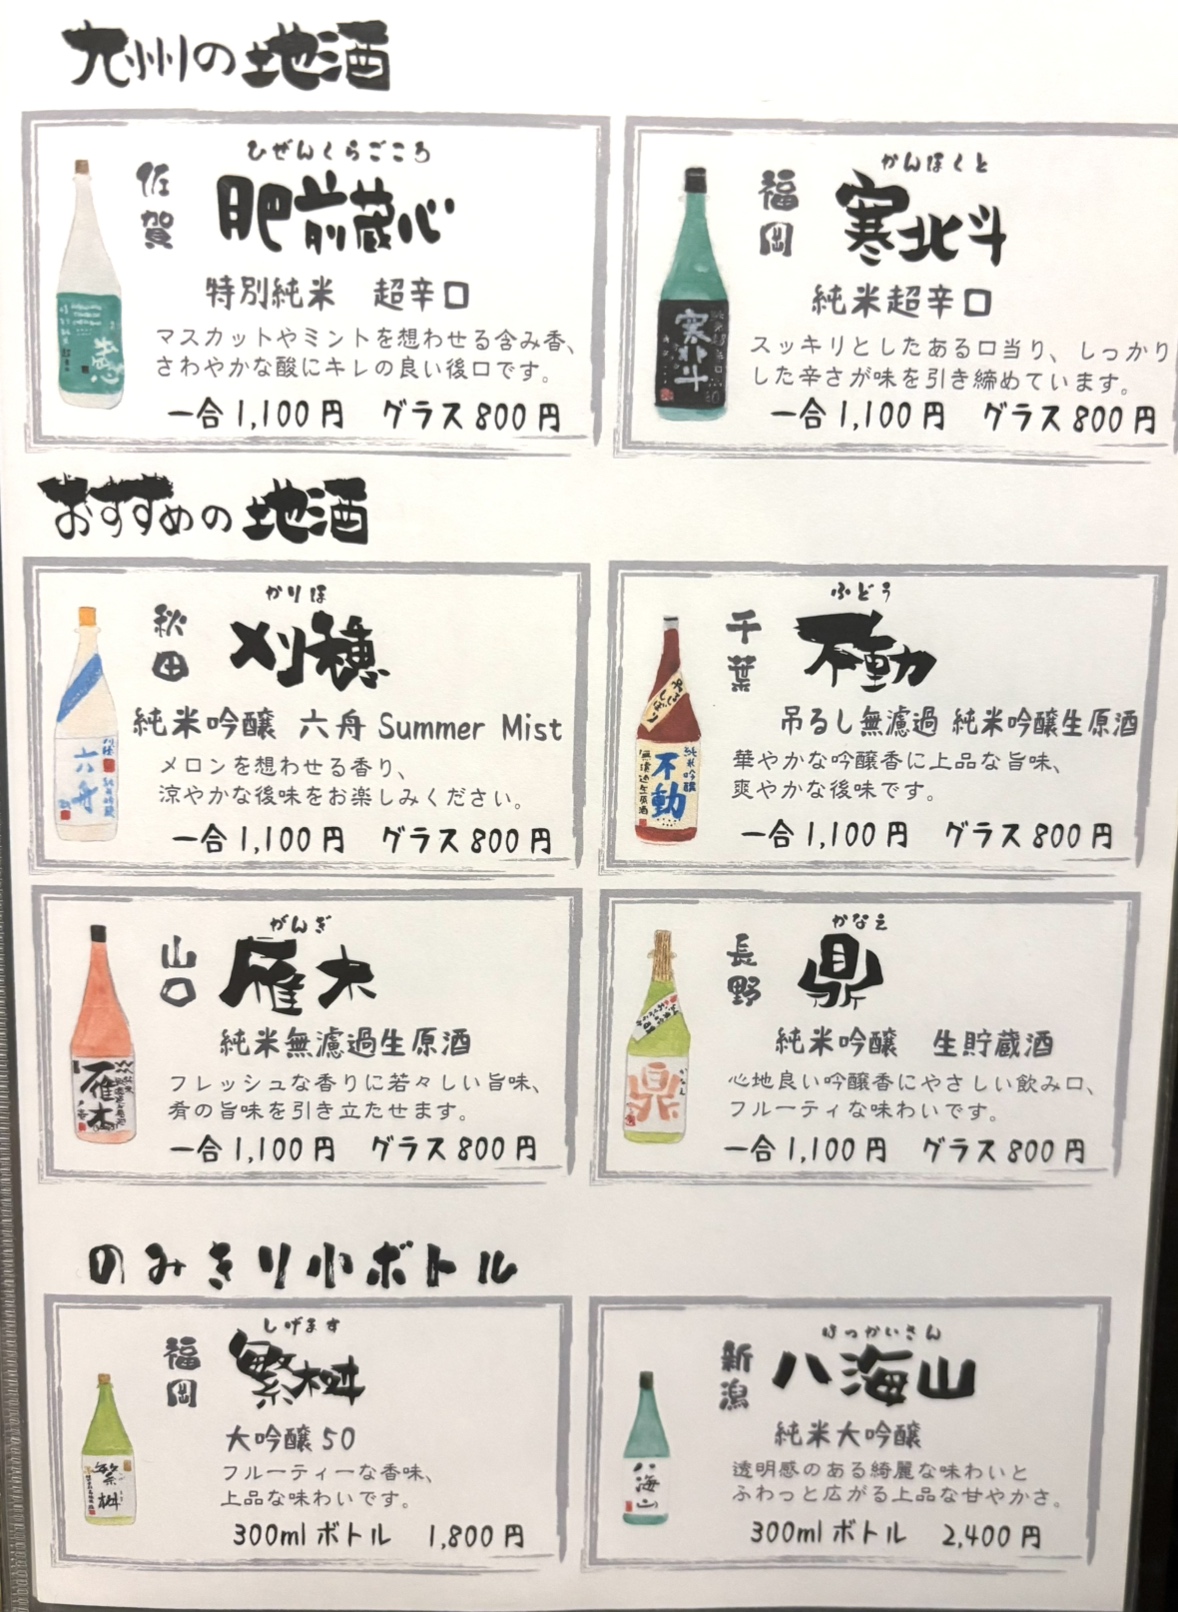 九州の地酒
佐賀
ひぜんくらごころ
肥前蔵心
特別純米 超辛口
マスカットやミントを想わせる含み香、
さわやかな酸にキレの良い後口です。
一合1,100円 グラス800円
福岡
かんほくと
寒北斗
純米超辛口
スッキリとしたある口当り、しっかり
した辛さが味を引き締めています。
一合1,100円 グラス800円
寒北斗
おすすめの地酒
秋田
かりほ
刈穂
純米吟醸 六舟 Summer Mist
メロンを想わせる香り、
涼やかな後味をお楽しみください。
一合1,100円 グラス800円
六舟
千葉
ふどう
不動
吊るし無濾過 純米吟醸生原酒
華やかな吟醸香に上品な旨味、
爽やかな後味です。
一合1,100円 グラス800円
不動
純米吟醸
無濾過生原酒
山口
がんぎ
雁木
純米無濾過生原酒
フレッシュな香りに若々しい旨味、
肴の旨味を引き立たせます。
一合1,100円 グラス800円
雁木
長野
かなえ
鼎
純米吟醸 生貯蔵酒
心地良い吟醸香にやさしい飲み口、
フルーティな味わいです。
一合1,100円 グラス800円
鼎
のみきり小ボトル
福岡
しげます
繁桝
大吟醸50
フルーティーな香味、
上品な味わいです。
300mlボトル 1,800円
繁桝
新潟
はっかいさん
八海山
純米大吟醸
透明感のある綺麗な味わいと
ふわっと広がる上品な甘やかさ。
300mlボトル 2,400円
八海山